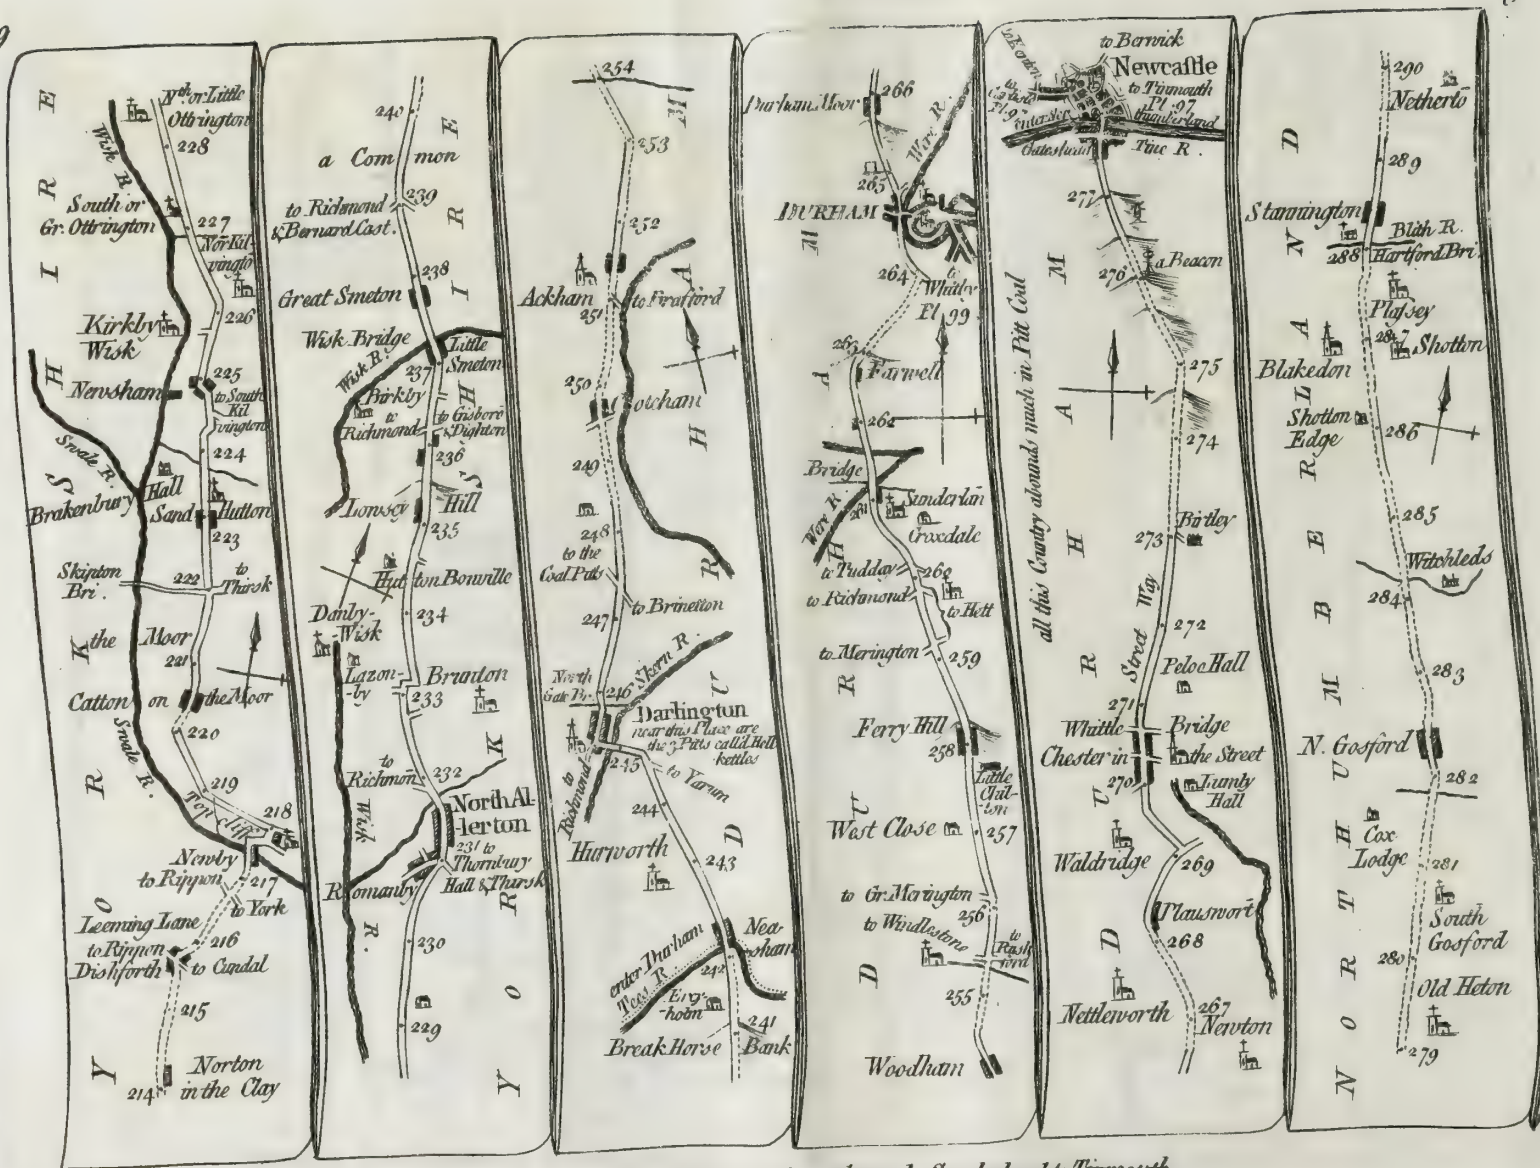 YORKSHIRE
Nth. or Little
Ottrington
228
Wisk R.
South or
Gr. Ottrington
227
Nor Kil-
vingto
226
Kirkby
Wisk
225
Newsham
to South
Kil
vington
224
Swale R.
Hall
Brakenbury
Sand Hutton
223
Skipton
Bri.
222
to
Thirsk
the Moor
221
Catton on the Moor
220
Swale R.
219
218
Topcliff
Newby
to Rippon
217
to York
Leeming Lane
216
to Rippon
Dishforth
to Cundal
215
Norton
in the Clay
214
YORKSHIRE
240
a Common
239
to Richmond
& Bernard Cast.
238
Great Smeton
Wisk Bridge
Little
Smeton
Wisk R.
237
Birkby
to
Richmond
to Gisboro
& Dighton
236
Lowsey Hill
235
Hutton Bonville
234
Danby-
Wisk
Lazon-
-by
Brunton
233
to
Richmon
232
North Al-
-lerton
231
to
Thornbury
Hall & Thirsk
Romanby
Wisk R.
230
229
DURHAM
254
253
252
Ackham
251
to Strafford
250
Cotcham
249
248
to the
Coal Pitts
to Brinetton
247
Skern R.
North
Gate Br.
246
Darlington
near this Place are
the 3 Pitts call'd Hell
kettles
245
to
Richmond
to Yarum
244
Hurworth
243
enter Durham
Tees R.
Nea-
sham
242
Eng-
-holm
241
Break Horse Bank
DURHAM
Durham Moor
266
Were R.
265
DURHAM
264
to
Whitby
Pl. 99
263
Farwell
262
Bridge
Were R.
261
Sunderlan
Croxdale
to Tudday
260
to Richmond
to Hett
to Merington
259
Ferry Hill
258
Little
Chil-
ton
West Close
257
to Gr. Merington
256
to Windlestone
to
Rush
ford
255
Woodham
all this Country abounds much in Pitt Coal
DURHAM
to Berwick
Newcastle
to Tinmouth
Pl. 97
Gateshead
Tine R.
277
276
a Beacon
275
274
273
Birtley
Street Way
272
Peloe Hall
271
Whittle Bridge
Chester in the Street
270
Lumly
Hall
Waldridge
269
Plauswort
268
Nettleworth
267
Newton
NORTHUMBERLAND
290
Netherto
289
Stannington
Blith R.
288
Hartford Bri.
Plassey
287
Shotton
Blakedon
Shotton
Edge
286
285
Witchleds
284
283
N. Gosford
282
Cox
Lodge
281
South
Gosford
280
Old Heton
279